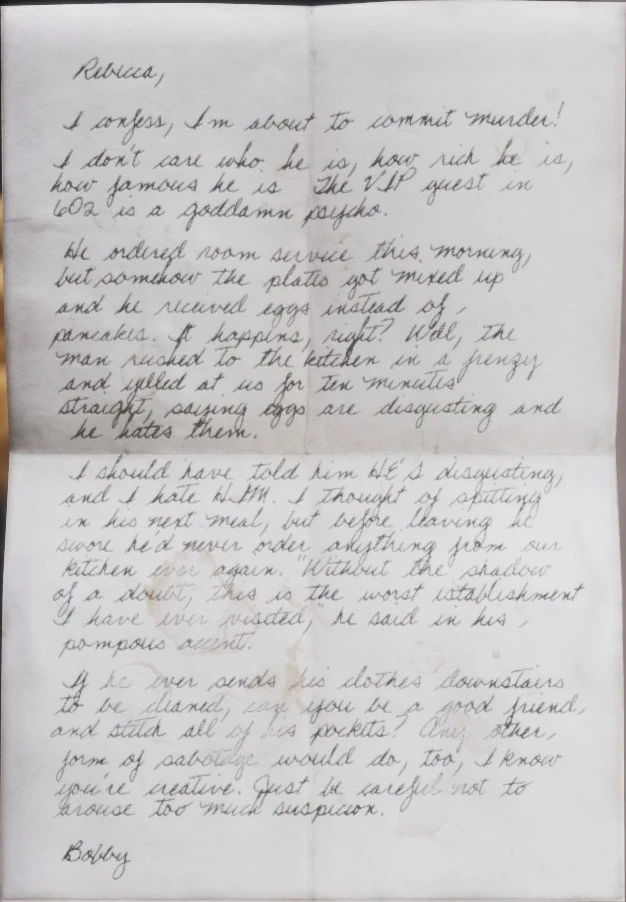 Rebecca,
I confess, I'm about to commit murder!
I don't care who he is, how rich he is,
how famous he is The VIP guest in
602 is a goddamn psycho.
He ordered room service this morning,
but somehow the plates got mixed up
and he received eggs instead of
pancakes. It happens, right? Well, the
man rushed to the kitchen in a frenzy
and yelled at us for ten minutes
straight, saying eggs are disgusting and
he hates them.
I should have told him HE'S disgusting,
and I hate HIM. I thought of spitting
in his next meal, but before leaving he
swore he'd never order anything from our
kitchen ever again. "Without the shadow
of a doubt, this is the worst establishment
I have ever visited," he said in his
pompous accent.
If he ever sends his clothes downstairs
to be cleaned, can you be a good friend,
and stitch all of his pockets? Any other,
form of sabotage would do, too, I know
you're creative. Just be careful not to
arouse too much suspicion.
Bobby